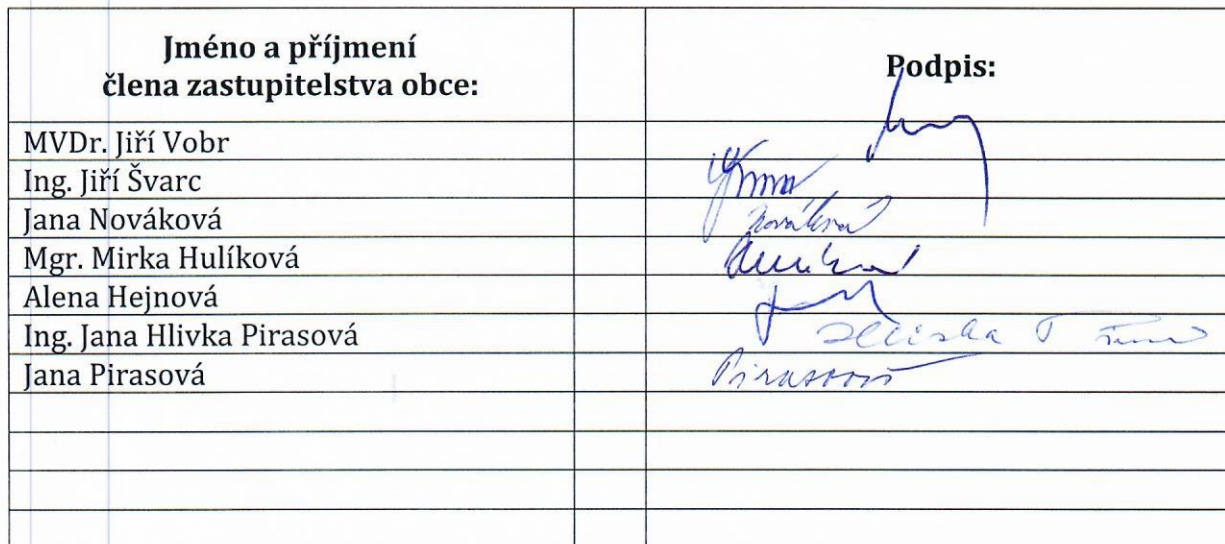 Jméno a příjmení
člena zastupitelstva obce:
Podpis:
MVDr. Jiří Vobr
Ing. Jiří Švarc
Jana Nováková
Nováková
Mgr. Mirka Hulíková
Alena Hejnová
Ing. Jana Hlivka Pirasová
Jana Pirasová
Pirasová